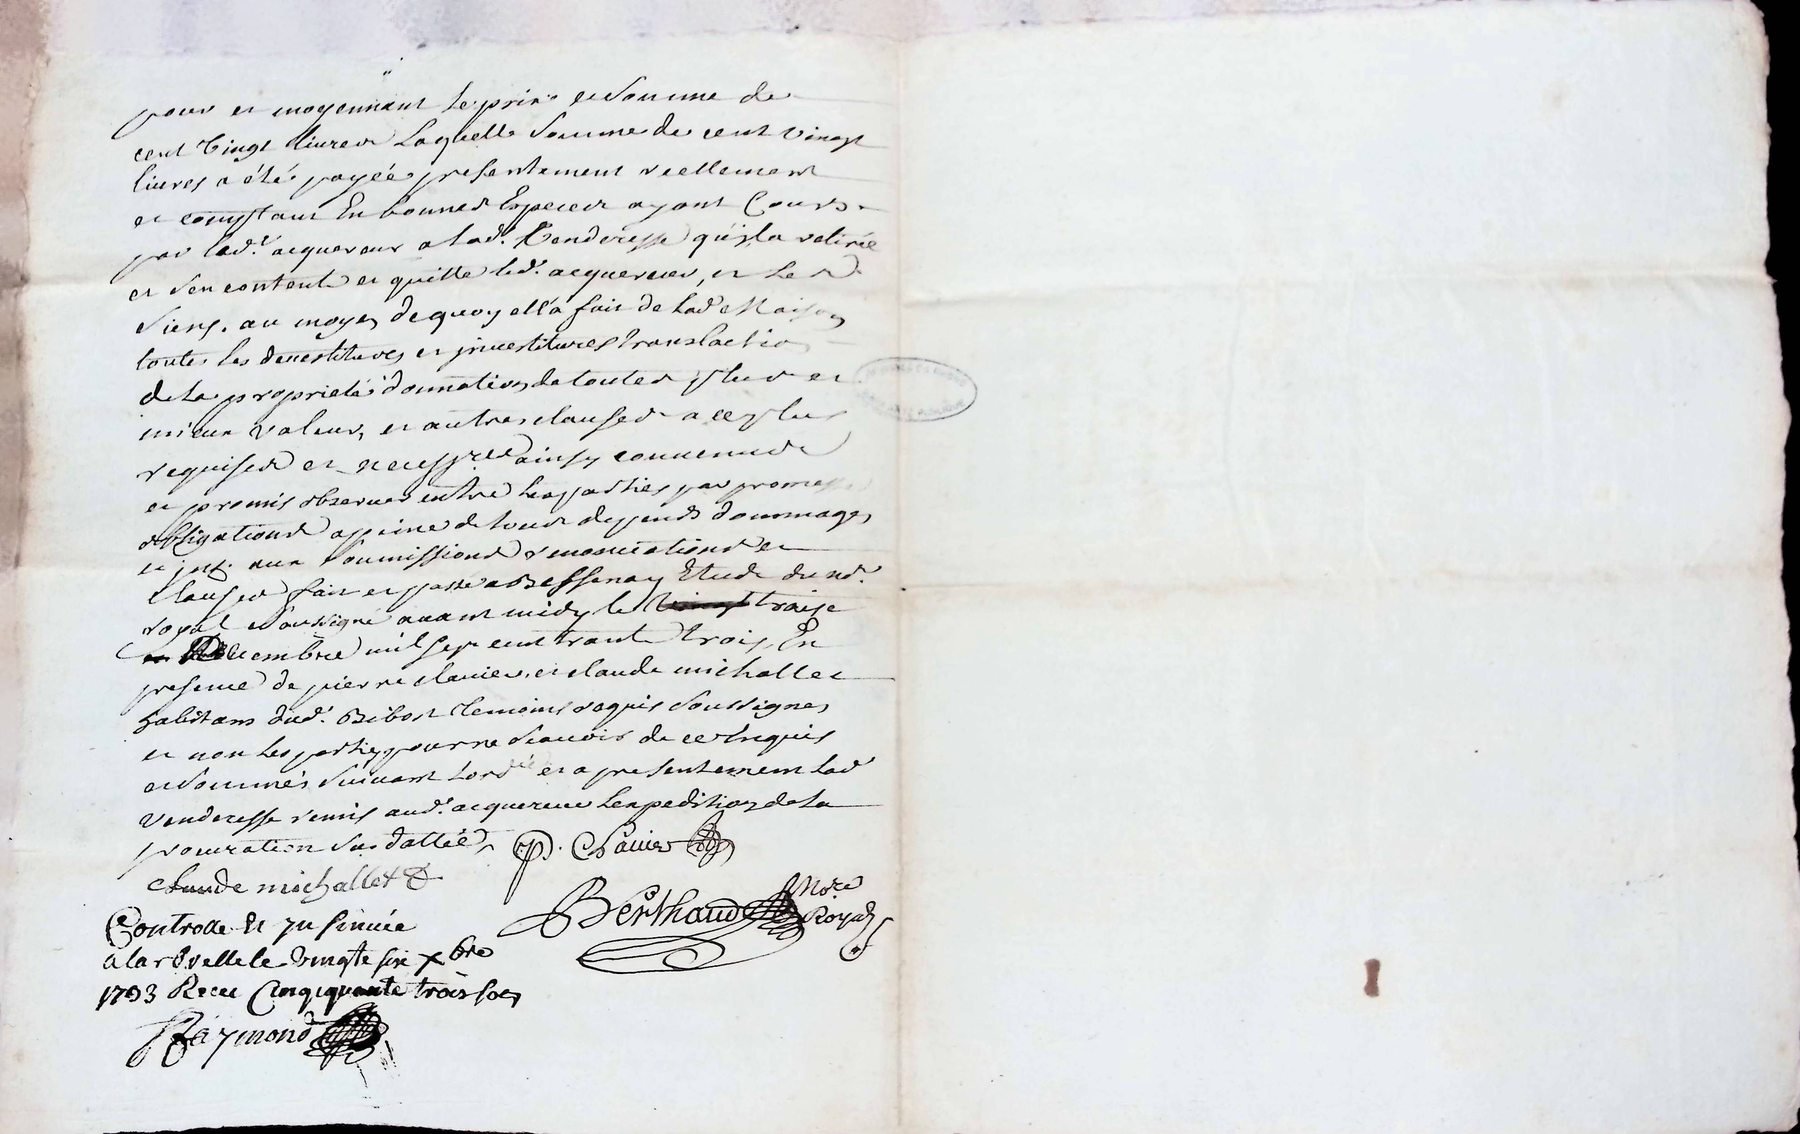 pour et moyennant le prix et somme de
cent vingt livres laquelle somme de cent vingt
livres a été payée presentement reellement
et comptant En bonnes Especes ayant Cours
par led.t acquereur a lad.t Venderesse qui la retirée
et s'en contente et quitte led.t acquereur, et les
siens, au moyen de quoy ella fait de lad Maison
toutes les devestitures et jnvestitures translation
de la proprieté donnation de toutes plus et
mieux valeur, et autres clauses a ce plus
requises et necessres ainsy convenues
et promis observer entre les parties par promesses
obligations a peine de tous depends dommages
et soumissions renonciations et
clauses fait et passé a Bessenay Etude du nd.
royal soussigné avant midy le traise
Decembre mil sept cent trante trois, En
presence de pierre clavier, et claude michallet
habitans dud.t Bibost temoins requis soussignes
et non les parties pour ne scavoir de ce enquis
et sommés suivant lordce et a presentement lad
venderesse remis aud.t acquereur lexpedition de la
procuration sus dattée,
P. Clavier
claude michallet
Berthaud Nore Royal
Controllé Et jnsinuée
a larbrelle le vingte six xbre
1733 Receu Cinqquante trois sols
Raymond